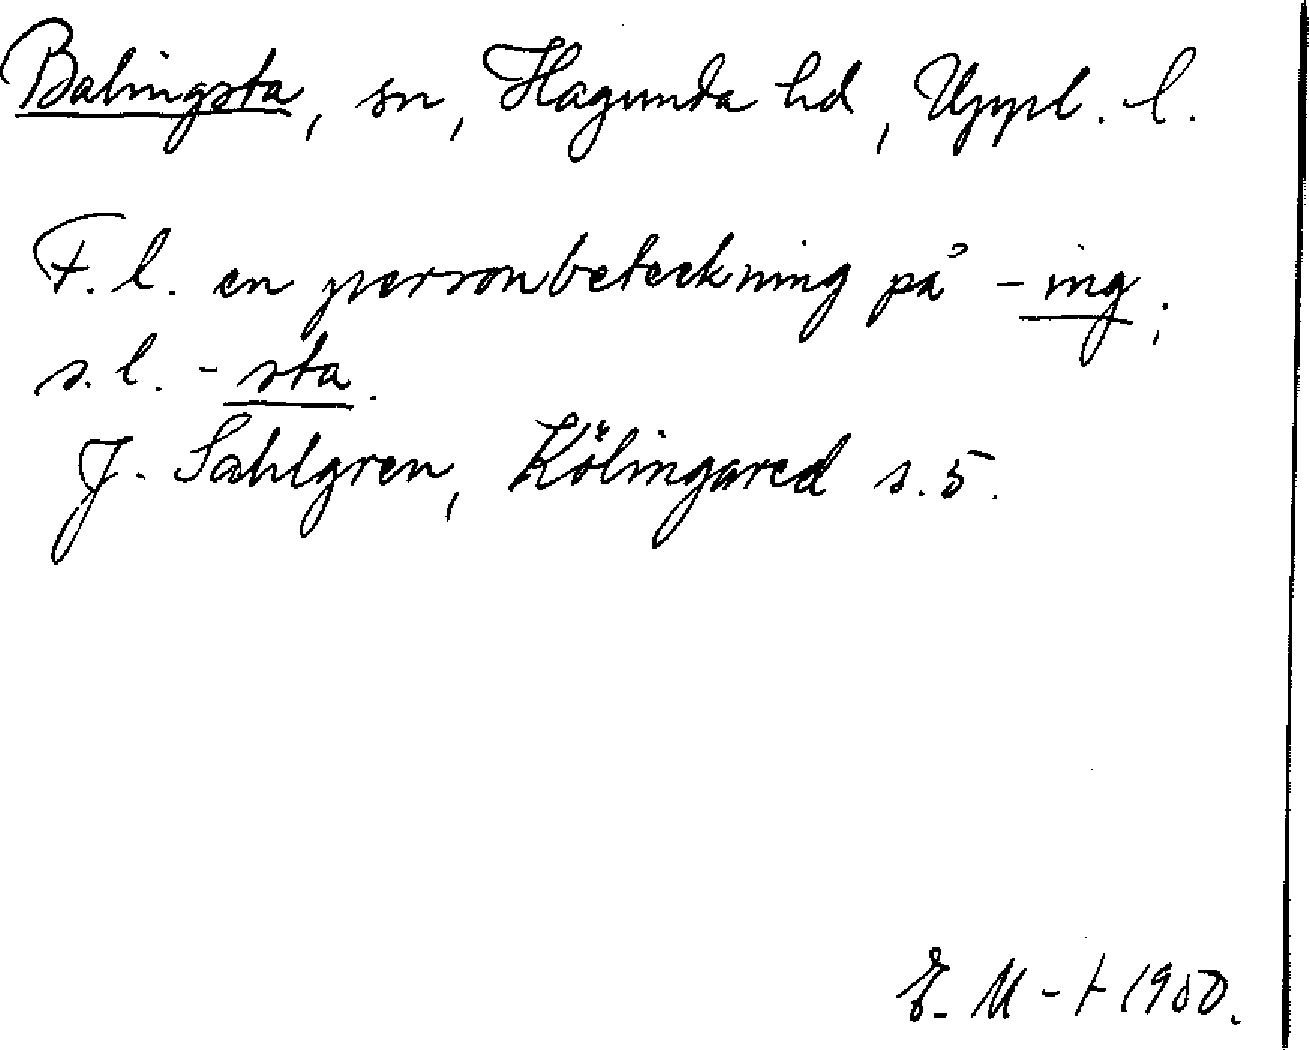 Balingsta, sn, Hagunda hd, Uppl. l.
F.l. en personbeteckning på -ing;
s.l. -sta.
J. Sahlgren, Kölingared s. 5.
E. M-t 1950.